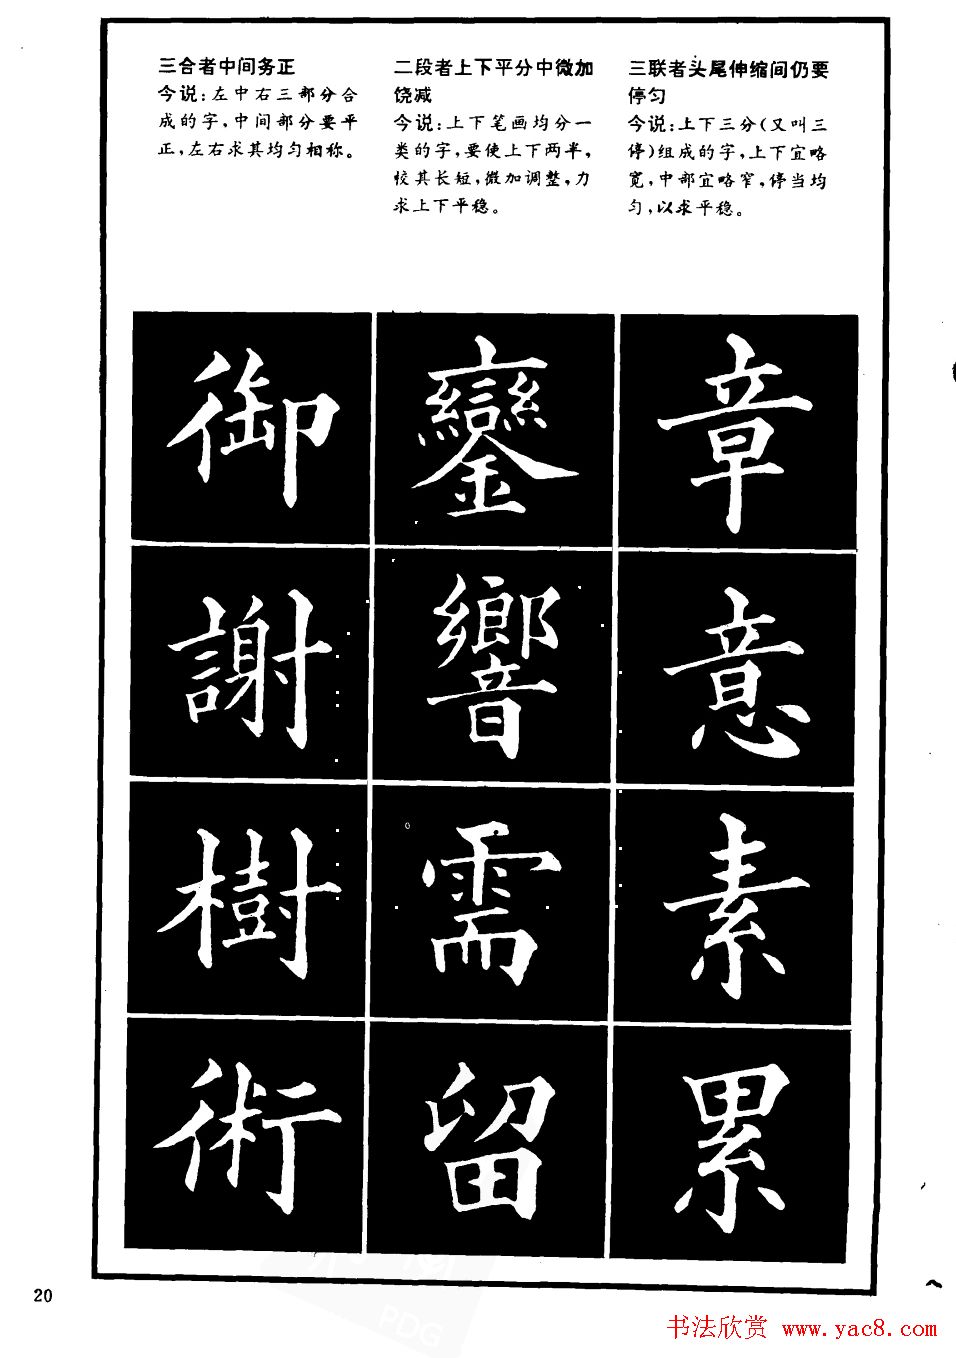 三合者中间务正
今说:左中右三部分合
成的字,中间部分要平
正,左右求其均匀相称。
二段者上下平分中微加
饶减
今说:上下笔画均分一
类的字,要使上下两半,
恔其长短,微加调整,力
求上下平稳。
三联者头尾伸缩间仍要
停匀
今说:上下三分(又叫三
停)组成的字,上下宜略
宽,中部宜略窄,停当均
匀,以求平稳。
御 鑾 章
謝 響 意
樹 需 素
術 留 累
20
PDG
书法欣赏 www.yac8.com